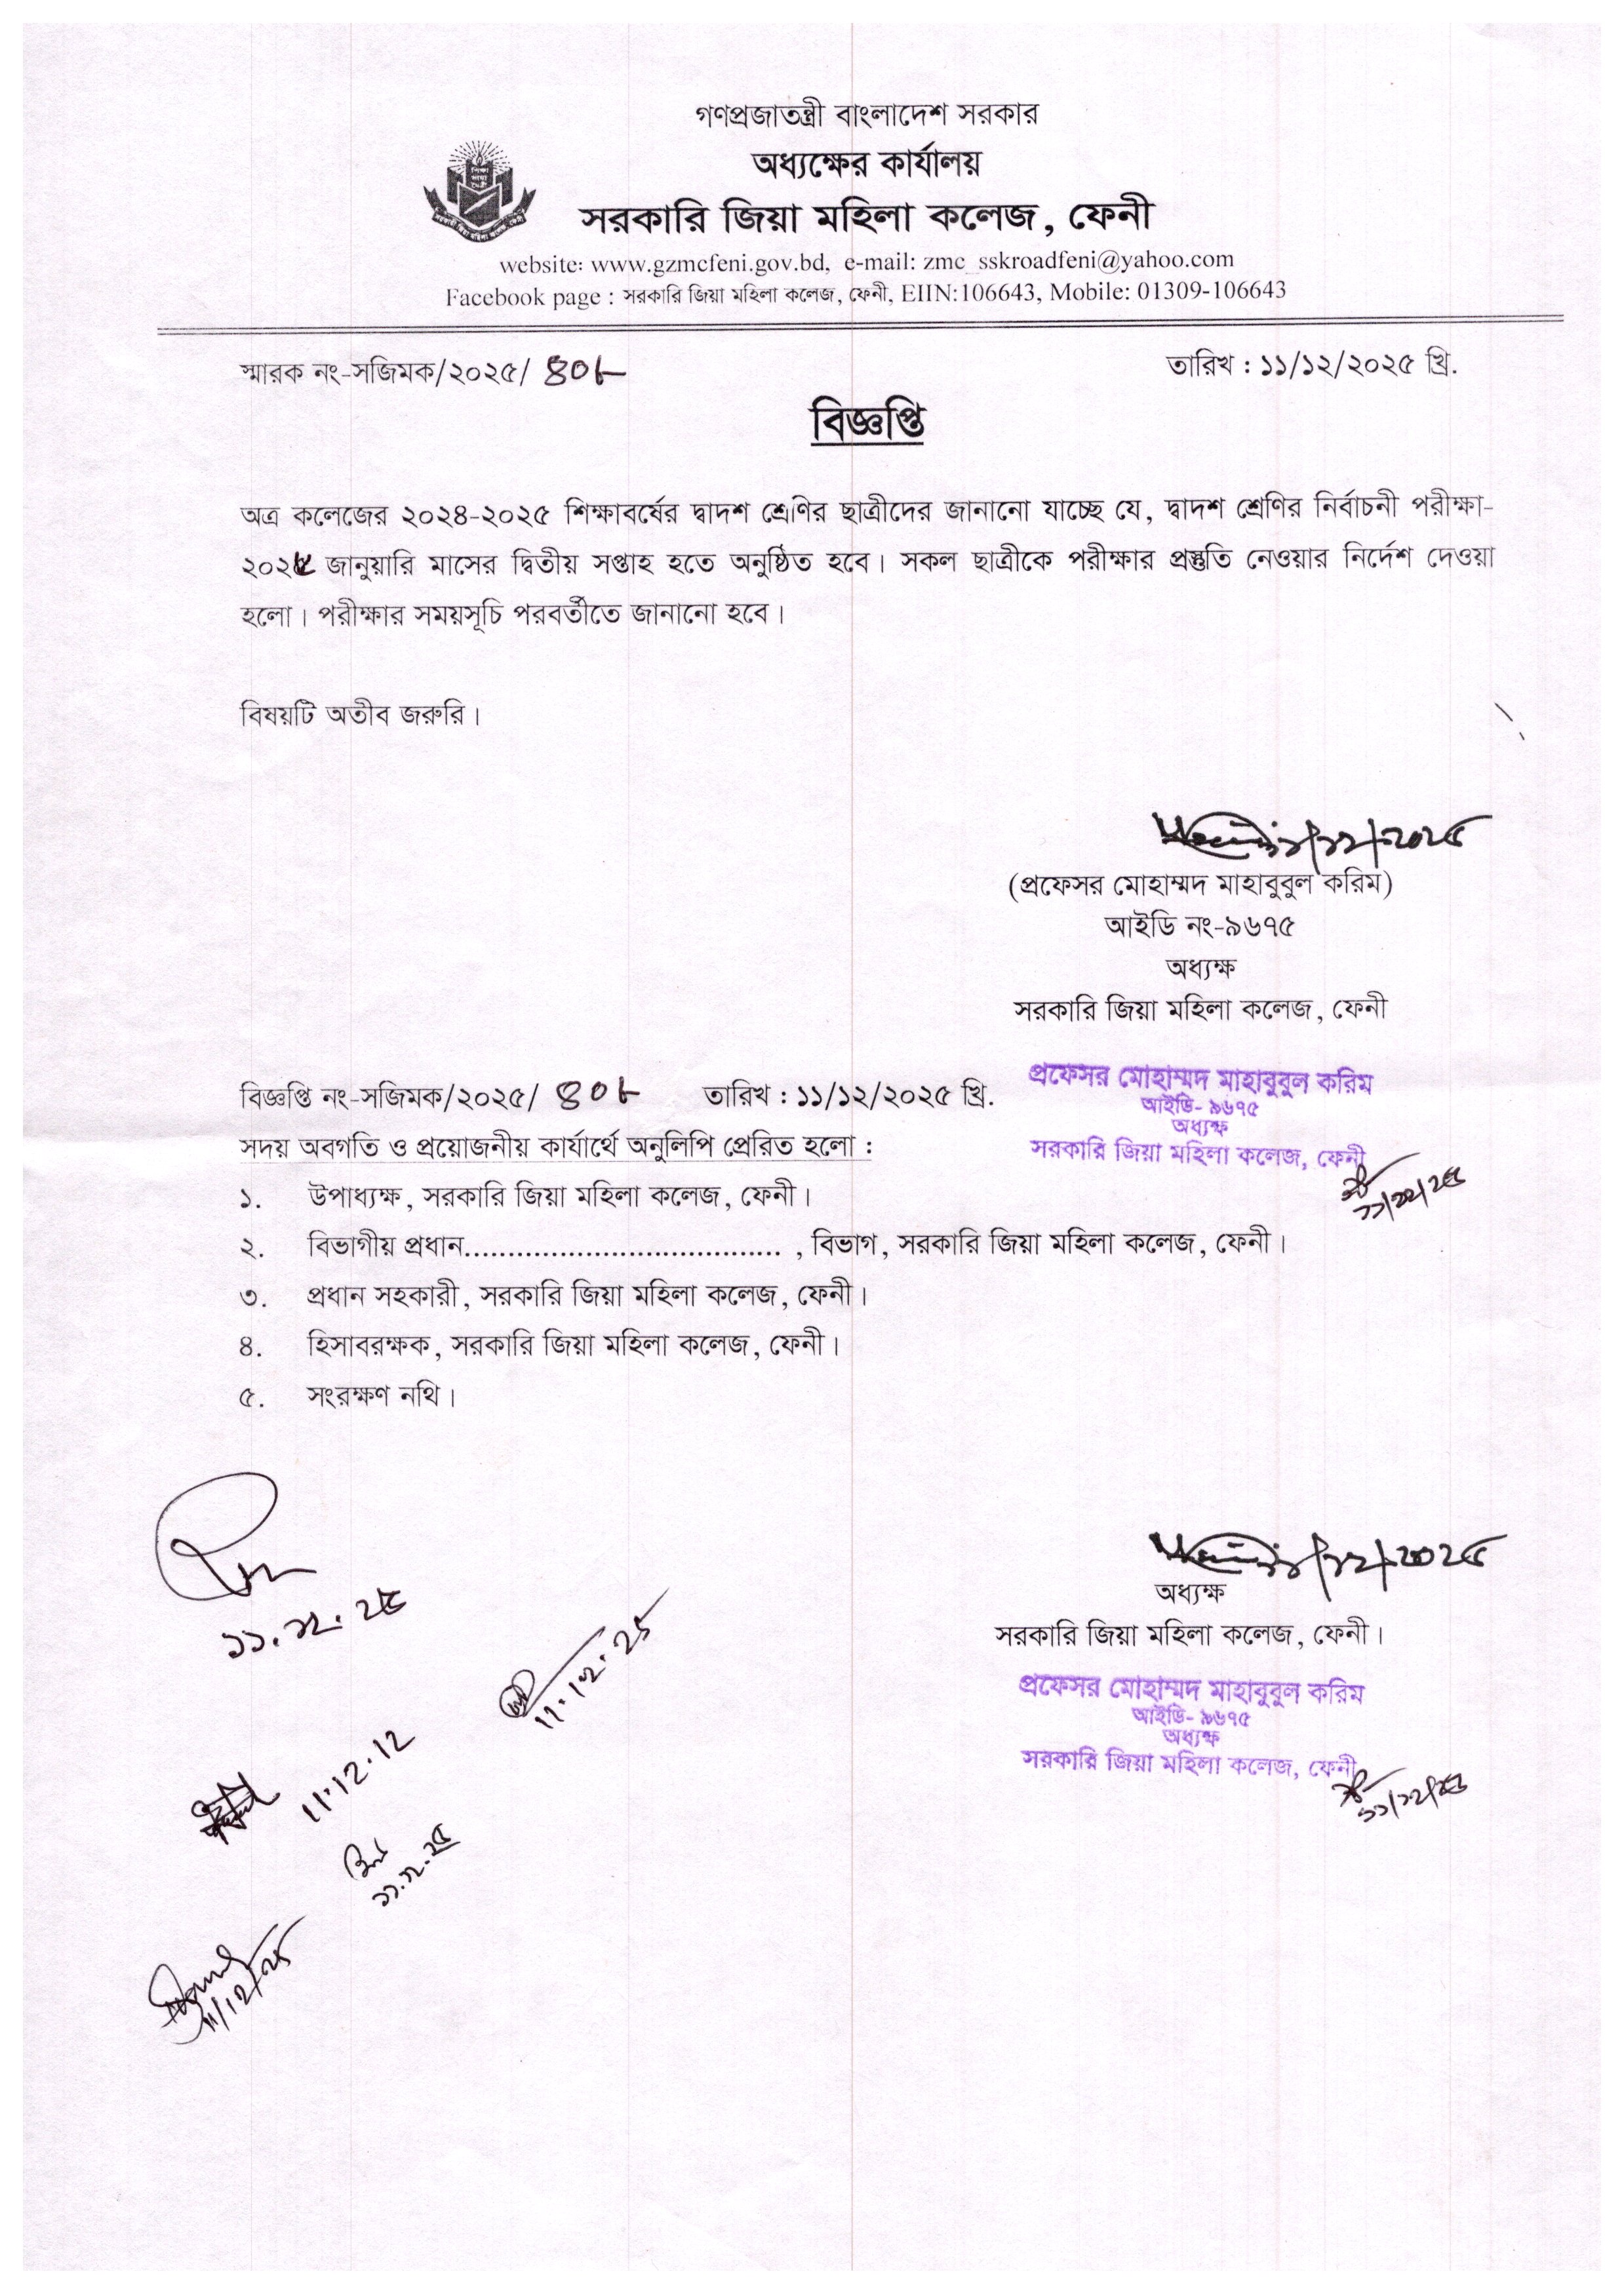 গণপ্রজাতন্ত্রী বাংলাদেশ সরকার
অধ্যক্ষের কার্যালয়
সরকারি জিয়া মহিলা কলেজ, ফেনী
website: www.gzmcfeni.gov.bd, e-mail: zmc_sskroadfeni@yahoo.com
Facebook page : সরকারি জিয়া মহিলা কলেজ, ফেনী, EIIN:106643, Mobile: 01309-106643
স্মারক নং-সজিমক/২০২৫/ ৪০৮ তারিখ : ১১/১২/২০২৫ খ্রি.
বিজ্ঞপ্তি
অত্র কলেজের ২০২৪-২০২৫ শিক্ষাবর্ষের দ্বাদশ শ্রেণির ছাত্রীদের জানানো যাচ্ছে যে, দ্বাদশ শ্রেণির নির্বাচনী পরীক্ষা-
জানুয়ারি মাসের দ্বিতীয় সপ্তাহ হতে অনুষ্ঠিত হবে। সকল ছাত্রীকে পরীক্ষার প্রস্তুতি নেওয়ার নির্দেশ দেওয়া
হলো। পরীক্ষার সময়সূচি পরবর্তীতে জানানো হবে।
বিষয়টি অতীব জরুরি।
১১/১২/২০২৫
(প্রফেসর মোহাম্মদ মাহাবুবুল করিম)
আইডি নং-৯৬৭৫
অধ্যক্ষ
সরকারি জিয়া মহিলা কলেজ, ফেনী
প্রফেসর মোহাম্মদ মাহাবুবুল করিম
আইডি- ৯৬৭৫
অধ্যক্ষ
সরকারি জিয়া মহিলা কলেজ, ফেনী
১১/১২/২৫
বিজ্ঞপ্তি নং-সজিমক/২০২৫/ ৪০৮ তারিখ : ১১/১২/২০২৫ খ্রি.
সদয় অবগতি ও প্রয়োজনীয় কার্যার্থে অনুলিপি প্রেরিত হলো :
১. উপাধ্যক্ষ, সরকারি জিয়া মহিলা কলেজ, ফেনী।
২. বিভাগীয় প্রধান.................................... , বিভাগ, সরকারি জিয়া মহিলা কলেজ, ফেনী।
৩. প্রধান সহকারী, সরকারি জিয়া মহিলা কলেজ, ফেনী।
৪. হিসাবরক্ষক, সরকারি জিয়া মহিলা কলেজ, ফেনী।
৫. সংরক্ষণ নথি।
১১/১২/২০২৫
অধ্যক্ষ
সরকারি জিয়া মহিলা কলেজ, ফেনী।
প্রফেসর মোহাম্মদ মাহাবুবুল করিম
আইডি- ৯৬৭৫
অধ্যক্ষ
সরকারি জিয়া মহিলা কলেজ, ফেনী
১১/১২/২৫
১১.১২.২৫
11.12.25
11.12.12
১১.১২.২৫
11/12/25